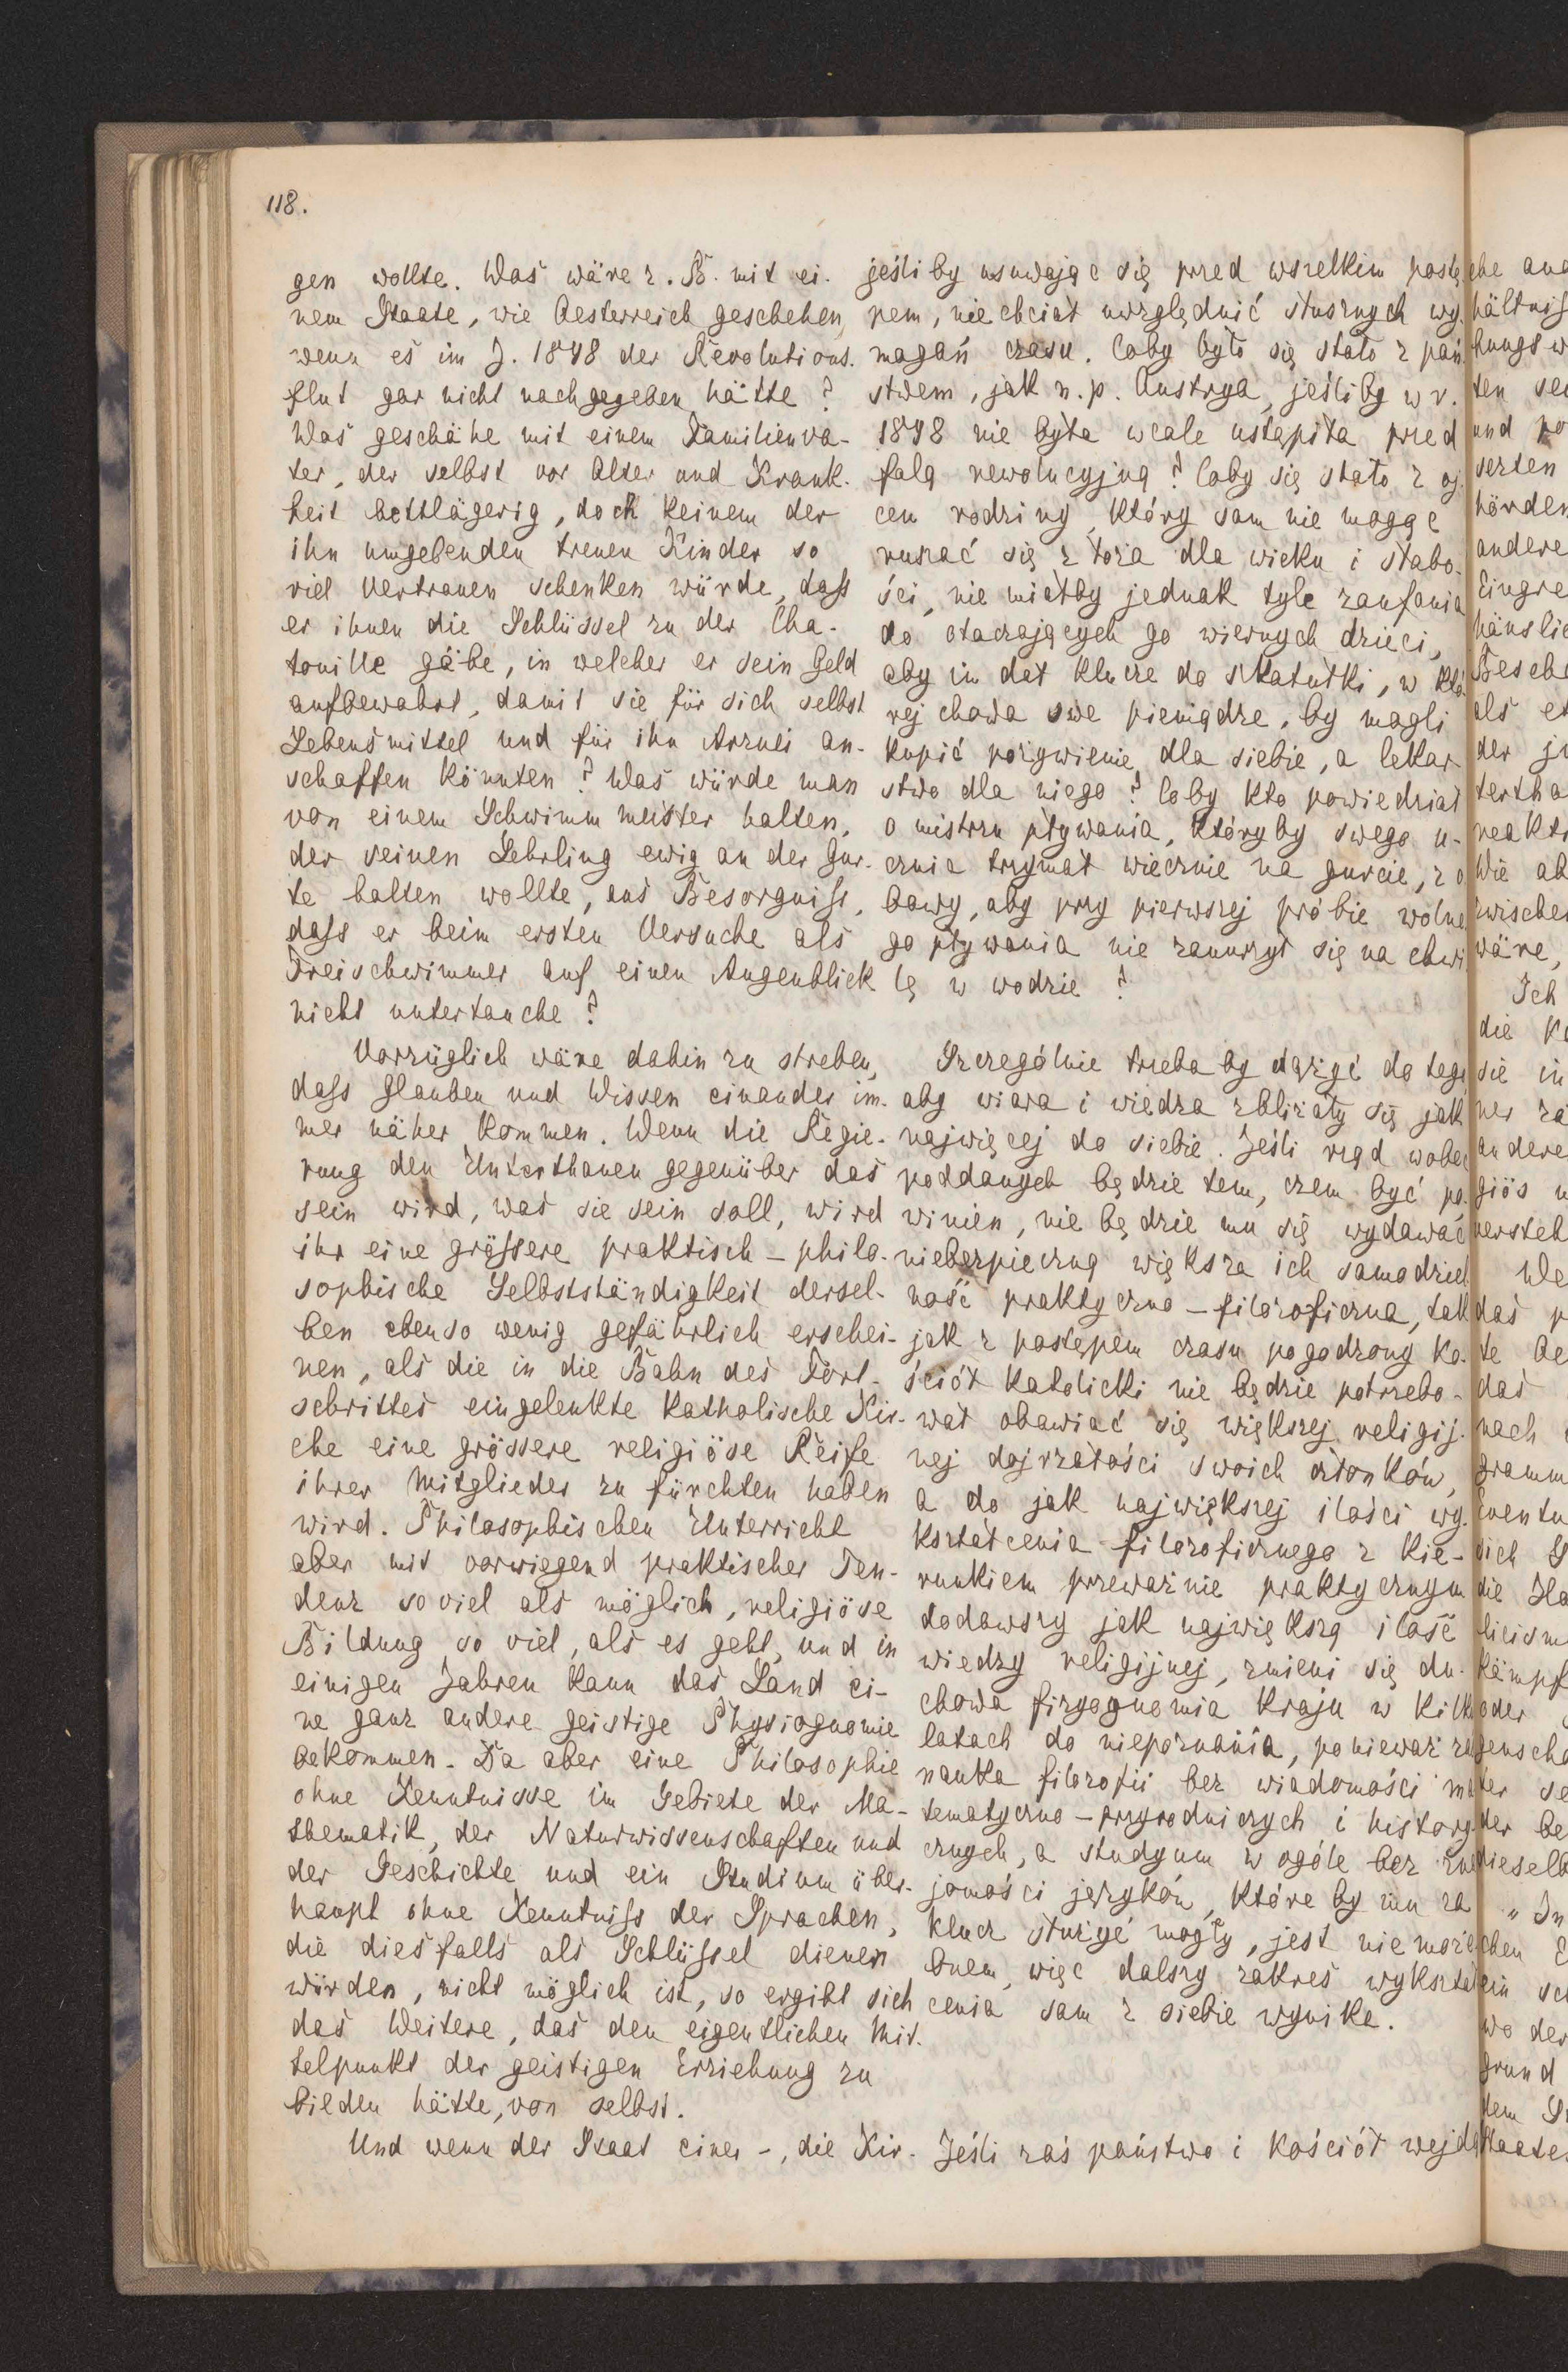 118.
gen wollte. Was wäre z. B. mit ei-
nem Staate, wie Oesterreich geschehen,
wenn es im J. 1848 der Revolutions-
flut gar nicht nachgegeben hätte?
Was geschähe mit einem Familienva-
ter, der selbst vor Alter und Krank-
heit bettlägerig, doch keinem der
ihn umgebenden treuen Kinder so
viel Vertrauen schenken würde, daſs
er ihnen die Schlüssel zu der Cha-
touille gäbe, in welcher er sein Geld
aufbewahrt, damit sie für sich selbst
Lebensmittel und für ihn Arznei an-
schaffen könnten? Was würde man
von einem Schwimmmeister halten,
der seinen Lehrling ewig an der Gur-
te halten wollte, aus Besorgniſs,
daſs er beim ersten Versuche als
Freischwimmer auf einen Augenblick
nicht untertauche?
Vorzüglich wäre dahin zu streben,
daſs Glauben und Wissen einander im-
mer näher kommen. Wenn die Regie-
rung den Unterthanen gegenüber das
sein wird, was sie sein soll, wird
ihr eine gröſsere praktisch-philo-
sophische Selbstständigkeit dersel-
ben ebenso wenig gefährlich erschei-
nen, als die in die Bahn des Fort-
schrittes eingelenkte katholische Kir-
che eine grössere religiöse Reife
ihrer Mitglieder zu fürchten haben
wird. Philosophischen Unterricht
aber mit vorwiegend praktischer Ten-
denz soviel als möglich, religiöse
Bildung so viel, als es geht, und in
einigen Jahren kann das Land ei-
ne ganz andere geistige Physiognomie
bekommen. Da aber eine Philosophie
ohne Kenntnisse im Gebiete der Ma-
thematik, der Naturwissenschaften und
der Geschichte und ein Studium über-
haupt ohne Kenntniſs der Sprachen,
die diesfalls als Schlüſsel dienen
würden, nicht möglich ist, so ergibt sich
das Weitere, das den eigentlichen Mit-
telpunkt der geistigen Erziehung zu
bilden hätte, von selbst.
Und wenn der Staat einer-, die Kir-
jeśliby usuwając się przed wszelkim postę
pem, nie chciał uwzględnić słusznych wy-
magań czasu. Coby było się stało z pań
stwem, jak n. p. Austrya, jeśliby w r.
1848 nie była wcale ustąpiła przed
falą rewolucyjną? Coby się stało z oj
cem rodziny, który sam nie mogąc
ruszać się z łoża dla wieku i słabo-
ści, nie miałby jednak tyle zaufania
do otaczających go wiernych dzieci,
aby im dał klucze do szkatułki, w któ
rej chowa swe pieniądze, by mogli
kupić pożywienie dla siebie, a lekar
stwo dla niego? Coby kto powiedział
o mistrzu pływania, któryby swego u-
cznia trzymał wiecznie na gurcie, z o
bawy, aby przy pierwszej próbie wolne
go pływania nie zanurzył się na chwi
lę w wodzie?
Szczególnie trzeba by dążyć do tego
aby wiara i wiedza zbliżały się jak
najwięcej do siebie. Jeśli rząd wobec
poddanych będzie tem, czem być po-
winien, nie będzie mu się wydawać
niebezpieczną większa ich samodziel
ność praktyczno-filozoficzna, tak
jak z postępem czasu pogodzony ko-
ściół katolicki nie będzie potrzebo-
wał obawiać się większej religij-
nej dojrzałości swoich członków,
a do jak największej ilości wy-
kształcenia filozoficznego z kie-
runkiem przeważnie praktycznym
dodawszy jak największą ilość
wiedzy religijnej, zmieni się du-
chowa fizyognomia kraju w kilku
latach do niepoznania, ponieważ za
nauka filozofii bez wiadomości ma
tematyczno-przyrodniczych i history
cznych, a studyum w ogóle bez zna
jomości języków, które by mu za
klucz służyć mogły, jest niemoże
bnem, więc dalszy zakres wykształ
cenia sam z siebie wynika.
Jeśli zaś państwo i kościół wejdą
che
hältniſ
hungsw
ten
und
serten
hörden
andere
Eingre
häuslic
Besch
als
der
tertha
reakt
Wie
zwischen
wäre,
Ich
die
sie in
ner
andere
giös
versteh
We
das
te
das
nach
gramm
Eventu
sich
die
licism
kämpf
oder
genscha
ter
der be
dieselb
„ In
chen
ein
wo der
grund
dem
Staate